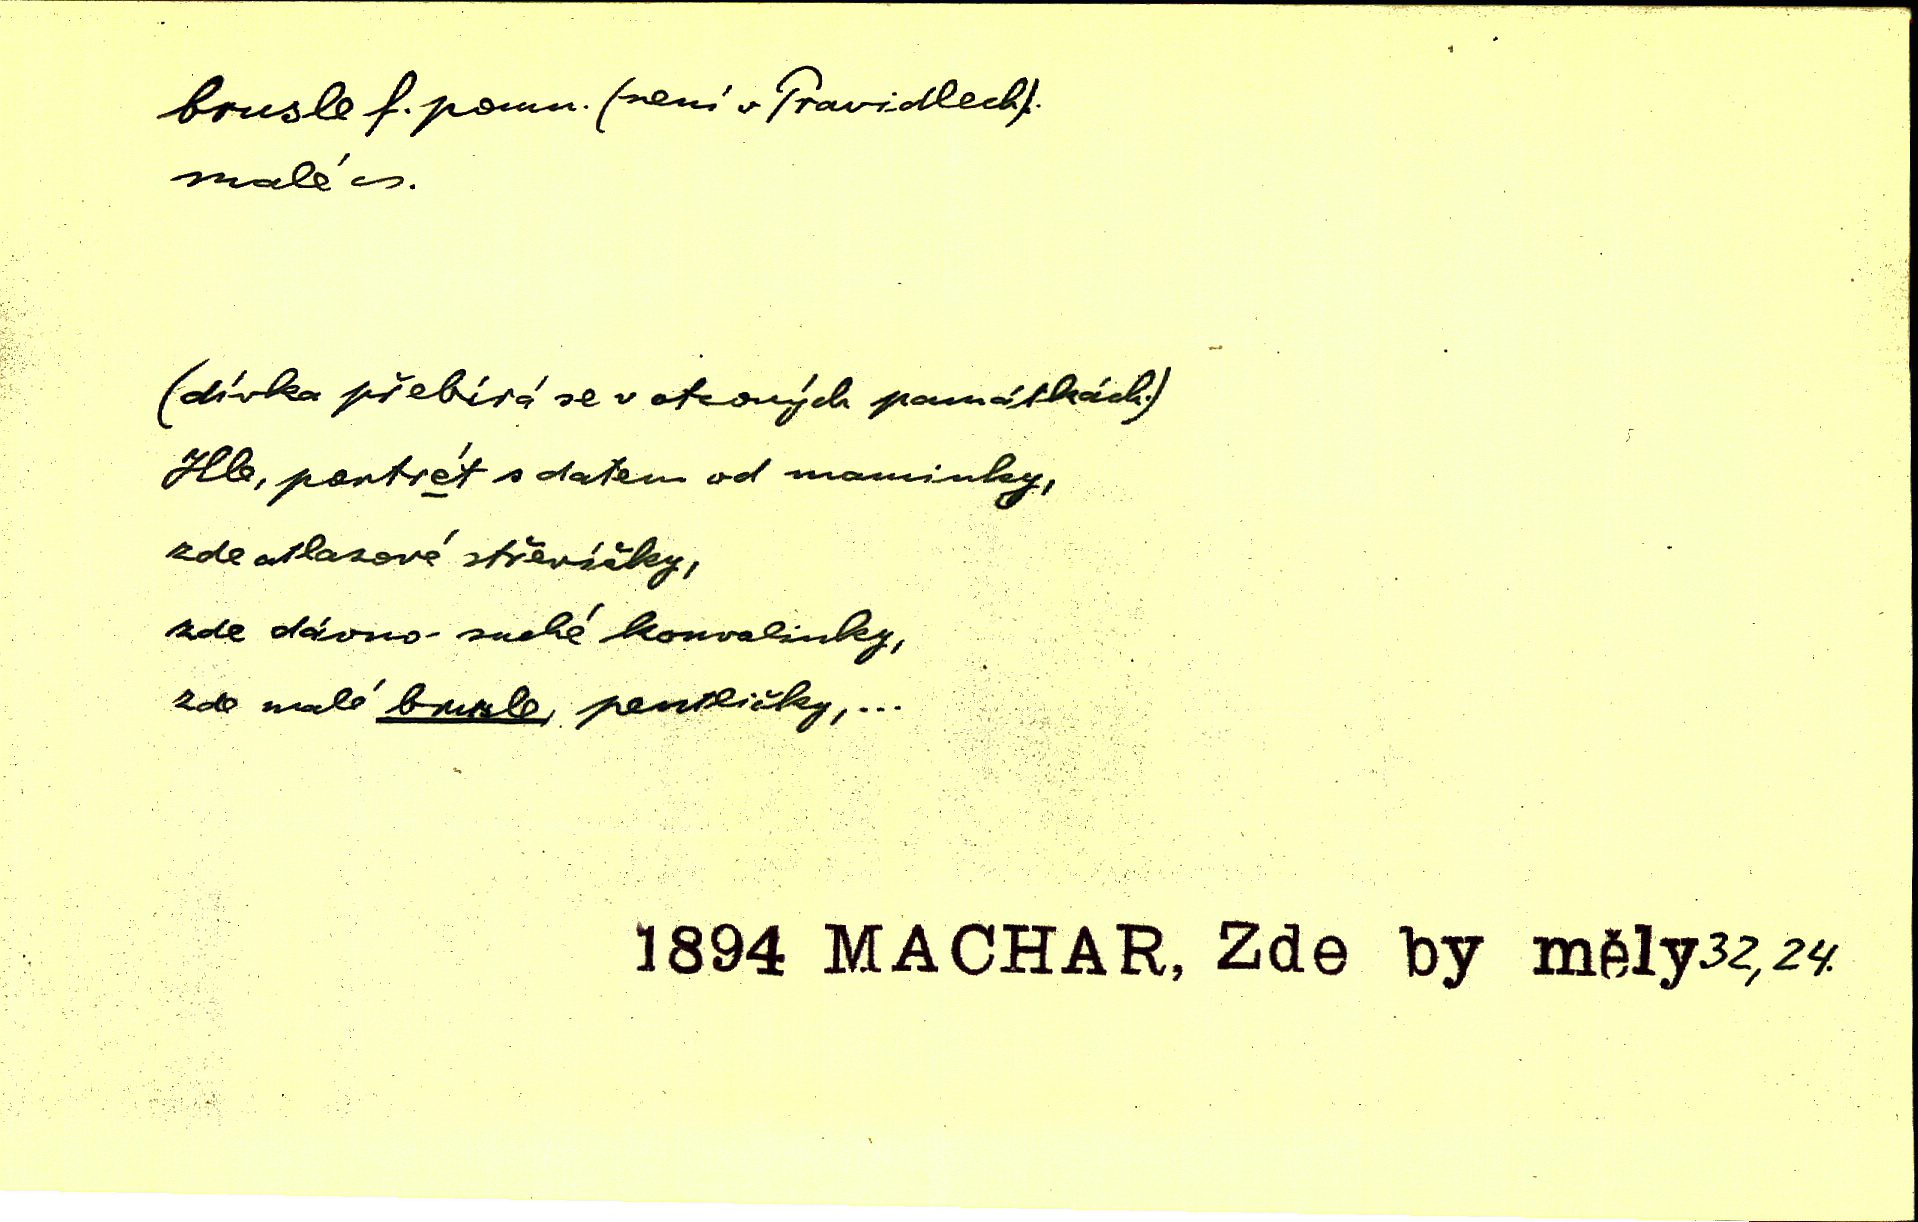 brusle f. pomn. (není v Pravidlech).
malé es.
(dívka přebírá se v otcových památkách.)
Hle, portrét s datem od maminky,
zde atlasové střevíčky,
zde dávno suché konvalinky,
zde malé brusle, pentličky, ...
1894 MACHAR, Zde by měly 32, 24.